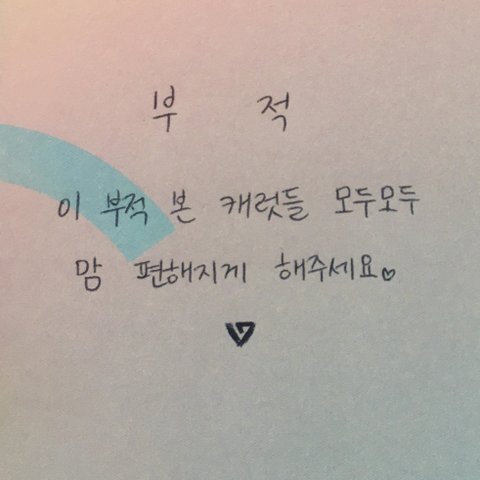 부 적
이 부적 본 캐럿들 모두모두
맘 편해지게 해주세요♡